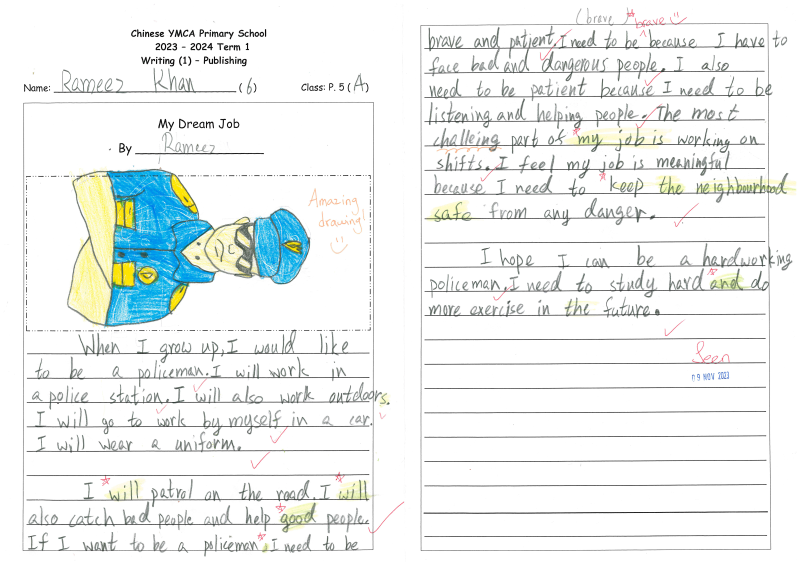 Chinese YMCA Primary School
2023 - 2024 Term 1
Writing (1) – Publishing
Name: Rameez Khan (6) Class: P. 5 (A)
My Dream Job
By Rameez
Amazing
drawing!
When I grow up, I would like
to be a policeman. I will work in
a police station. I will also work outdoors.
I will go to work by myself in a car.
I will wear a uniform.
I will patrol on the road. I will
also catch bad people and help good people.
If I want to be a policeman, I need to be
(brave) brave
brave and patient. I need to be because I have to
face bad and dangerous people. I also
need to be patient because I need to be
listening and helping people. The most
challeing part of my job is working on
shifts. I feel my job is meaningful
because I need to keep the neighbourhood
safe from any danger.
I hope I can be a hardworking
policeman. I need to study hard and do
more exercise in the future.
Seen
09 NOV 2023